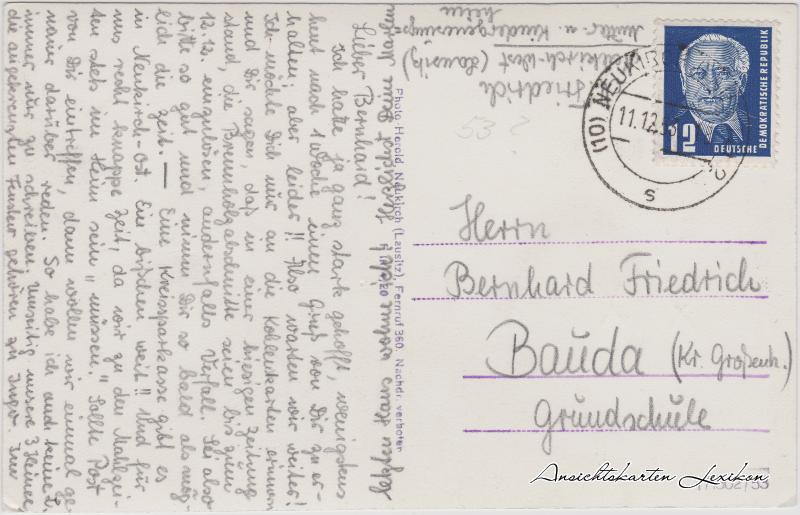 Friedrich
Neukirch-West (Lausitz)
Mütter- u. Kindergenesungs-
heim
Lieber Bernhard!
Ich hatte ja ganz stark gehofft, wenigstens
heut nach 1 Woche einen Gruß von Dir zu er-
halten; aber leider!! Also warten wir weiter!
Ich möchte Dich nur an die Kohlenkarten erinnern
und Dir sagen, daß in einer hiesigen Zeitung
stand, die Brennholzabschnitte seien bis zum
12.12. einzulösen, andernfalls Verfall. Sei also
bitte so gut und nimm Dir so bald als mög-
lich die Zeit. — Eine Kreissparkasse gibt es
in Neukirch-Ost. Ein bißchen weit!! Und für
uns recht knappe Zeit, da wir zu den Mahlzei-
ten stets im Heim sein "müssen." Sollte Post
von Dir eintreffen, dann wollen wir einmal ge-
nauer darüber reden. So habe ich auch keine
immer nur zu schreiben. Umseitig unsere 3 Heime,
die angekreuzten Fenster gehören zu Inge. Im
letzten Haus wohne
Photo-Herold, Neukirch (Lausitz), Fernruf 360. Nachdr. verboten
53?
(10) NEUKIRCH
11.12.53
s
12
DEUTSCHE
DEMOKRATISCHE REPUBLIK
Herrn
Bernhard Friedrich
Bauda (Kr. Großenh.)
Grundschule
Ansichtskarten Lexikon